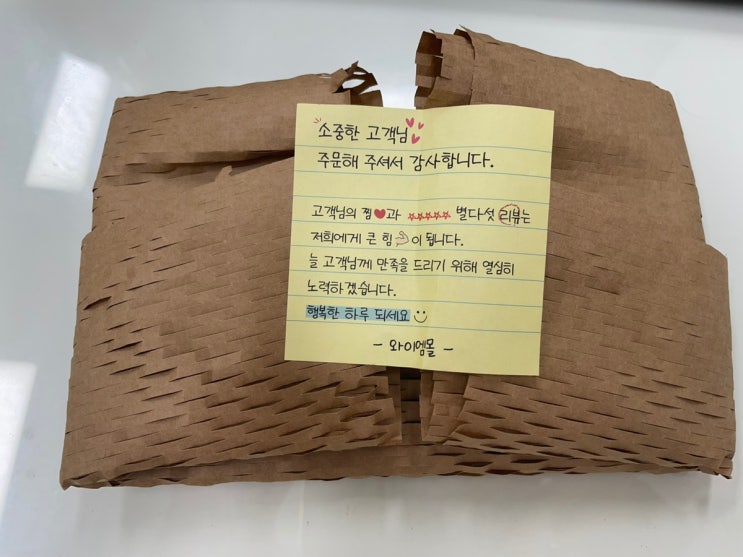 소중한 고객님
주문해 주셔서 감사합니다.
고객님의 찜♥과 ☆☆☆☆☆ 별다섯 리뷰는
저희에게 큰 힘이 됩니다.
늘 고객님께 만족을 드리기 위해 열심히
노력하겠습니다.
행복한 하루 되세요
- 와이엠몰 -